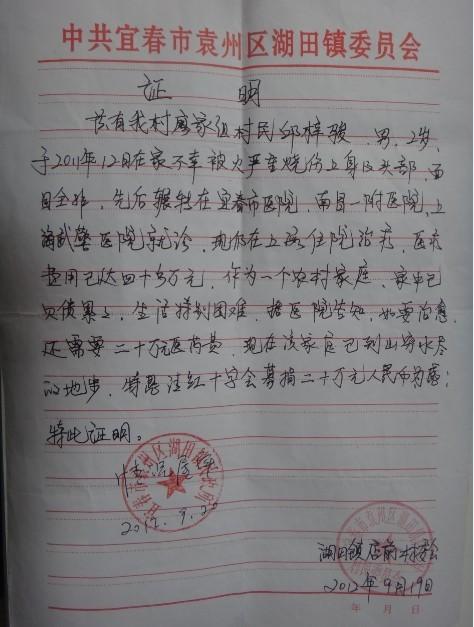 中共宜春市袁州区湖田镇委员会
证 明
兹有我村廖家组村民邱梓骏，男，2岁，
于2011年12月在家不幸被火严重烧伤上身及头部，面
目全非，先后辗转在宜春市医院，南昌一附医院，上
海武警医院就诊，现仍在上海住院治疗，医疗
费用已达四十多万元，作为一个农村家庭，家中已
欠债累累，生活特别困难，据医院告知，如要治愈
还需要二十万元医药费，现在该家庭已到山穷水尽
的地步，特恳请红十字会募捐二十万元人民币为感！
特此证明。
情况属实
2012.9.20
湖田镇店前村委会
2012年9月19日
年 月 日